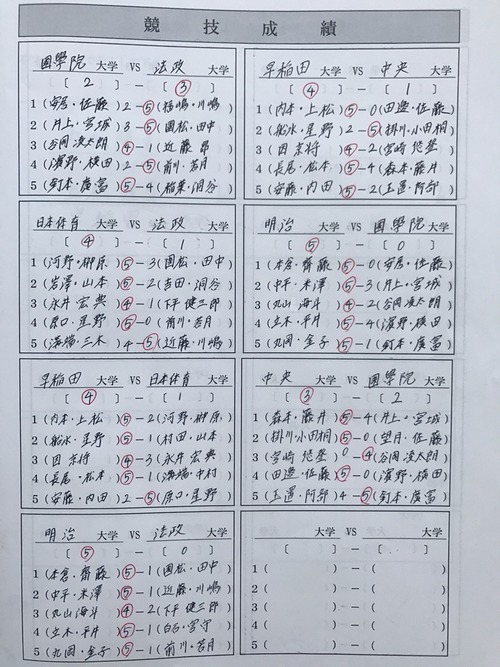 競技成績
國學院 大学 VS 法政 大学
〔 2 〕 － 〔 ③ 〕
1 (安居・佐藤) 2－⑤ (福嶋・川嶋)
2 (片上・宮城) 3－⑤ (國松・田中)
3 (谷岡 凌太朗) ④－1 (近藤 昂)
4 (濱野・横田) 2－⑤ (前川・若月)
5 (釘本・廣富) ⑤－4 (稲葉・洞谷)
早稲田 大学 VS 中央 大学
〔 ④ 〕 － 〔 1 〕
1 (内本・上松) ⑤－0 (田邉・佐藤)
2 (船水・星野) 2－⑤ (掛川・小田桐)
3 (因 京将) ④－2 (宮崎 悠基)
4 (長尾・松本) ⑤－4 (森本・藤井)
5 (安藤・内田) ⑤－2 (玉置・阿部)
日本体育 大学 VS 法政 大学
〔 ④ 〕 － 〔 1 〕
1 (河野・榊原) ⑤－3 (國松・田中)
2 (・山本) ⑤－2 (吉田・洞谷)
3 (永井 宏典) ④－1 (下平 健三郎)
4 (原口・星野) ⑤－0 (前川・若月)
5 (海端・三木) 4－⑤ (近藤・川嶋)
明治 大学 VS 國學院 大学
〔 ⑤ 〕 － 〔 0 〕
1 (本倉・齋藤) ⑤－0 (安居・佐藤)
2 (中平・米澤) ⑤－3 (片上・宮城)
3 (丸山 海斗) ④－2 (谷岡 凌太朗)
4 (立木・平井) ⑤－4 (濱野・横田)
5 (丸岡・金子) ⑤－1 (釘本・廣富)
早稲田 大学 VS 日本体育 大学
〔 ④ 〕 － 〔 1 〕
1 (内本・上松) ⑤－2 (河野・榊原)
2 (船水・星野) ⑤－1 (村田・山本)
3 (因 京将) ④－3 (永井 宏典)
4 (長尾・松本) ⑤－1 (海端・中村)
5 (安藤・内田) 2－⑤ (原口・星野)
中央 大学 VS 國學院 大学
〔 ③ 〕 － 〔 2 〕
1 (森本・藤井) ⑤－4 (片上・宮城)
2 (掛川・小田桐) ⑤－0 (望月・佐藤)
3 (宮崎 悠基) 0－④ (谷岡凌太朗)
4 (田邉・佐藤) ⑤－0 (濱野・横田)
5 (玉置・阿部) 4－⑤ (釘本・廣富)
明治 大学 VS 法政 大学
〔 ⑤ 〕 － 〔 0 〕
1 (本倉・齋藤) ⑤－1 (國松・田中)
2 (中平・米澤) ⑤－1 (近藤・川嶋)
3 (丸山海斗) ④－2 (下平 健三郎)
4 (立木・平井) ⑤－1 (白石・宮守)
5 (丸岡・金子) ⑤－1 (前川・若月)
大学 VS 大学
〔 〕 － 〔 〕
1 ( ) － ( )
2 ( ) － ( )
3 ( ) － ( )
4 ( ) － ( )
5 ( ) － ( )